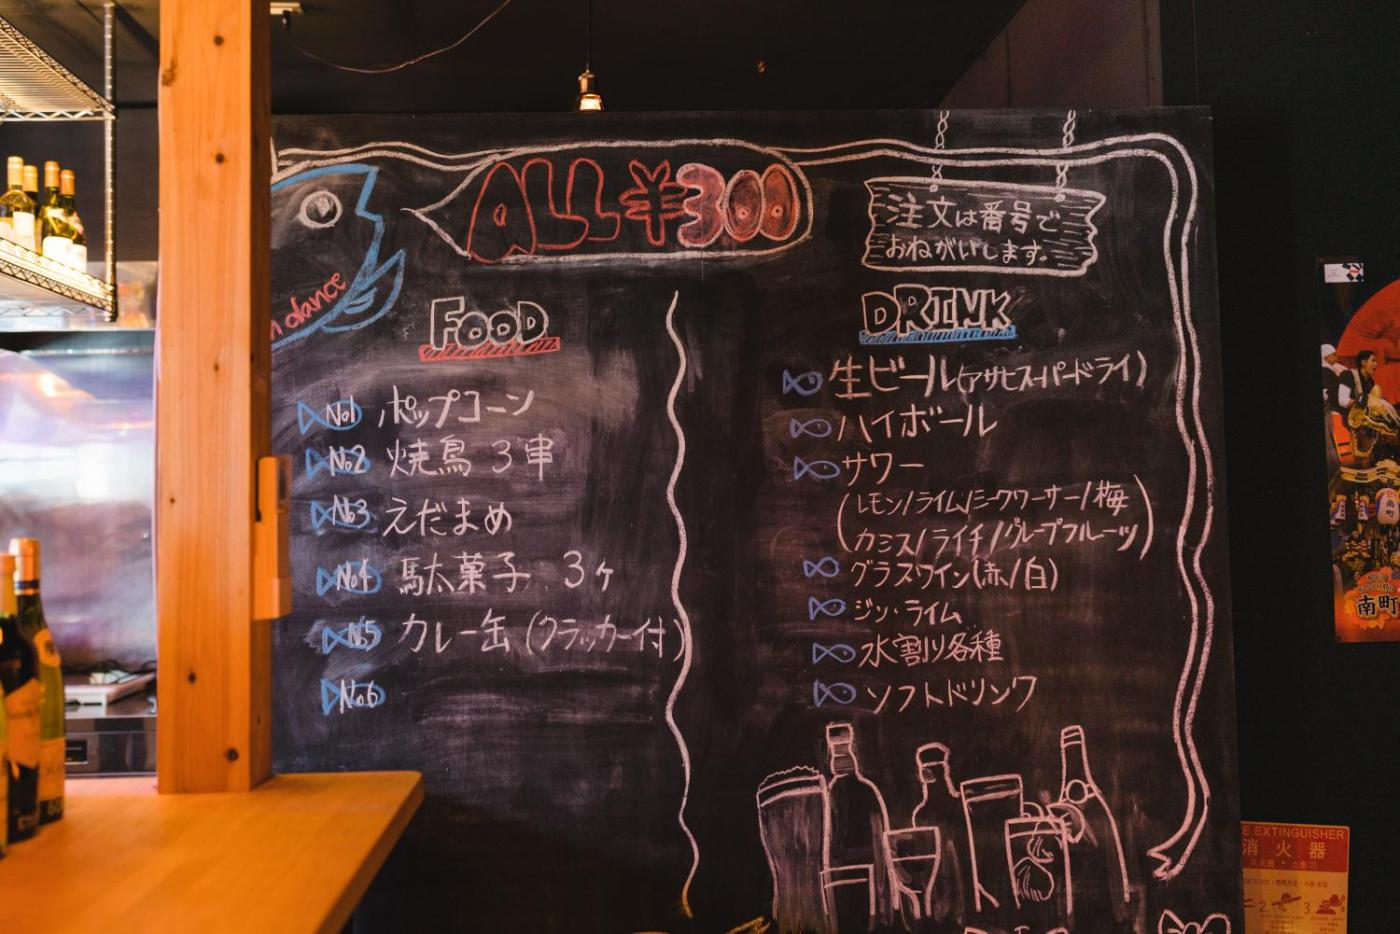 ALL ¥300
注文は番号で
おねがいします。
dance
FOOD
No.1 ポップコーン
No.2 焼鳥 3串
No.3 えだまめ
No.4 駄菓子 3ヶ
No.5 カレー缶(クラッカー付)
No.6
DRINK
生ビール(アサヒスーパードライ)
ハイボール
サワー
(レモン/ライム/シークワーサー/梅
カシス/ライチ/グレープフルーツ)
グラスワイン(赤/白)
ジン・ライム
水割り各種
ソフトドリンク
南町
E EXTINGUISHER
消火器
灭火器・소화기
2 3